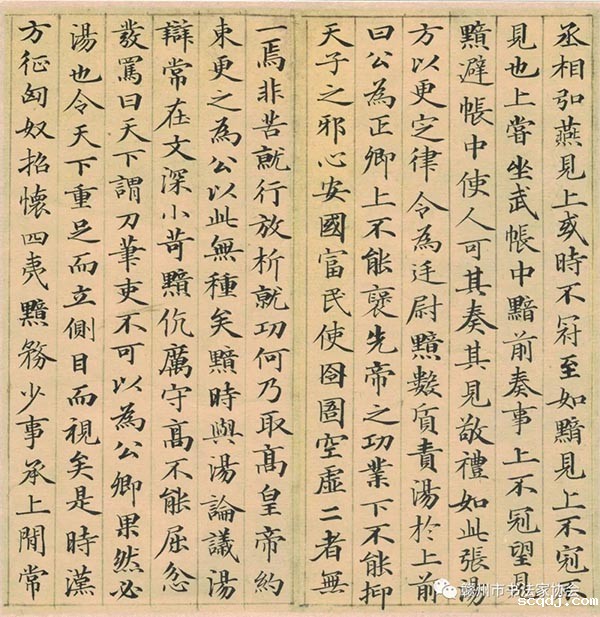 丞相弘燕見上或時不冠至如黯見上不冠不
見也上嘗坐武帳中黯前奏事上不冠望見
黯避帳中使人可其奏其見敬禮如此張湯
方以更定律令為廷尉黯數質責湯於上前
曰公為正卿上不能襃先帝之功業下不能抑
天子之邪心安國富民使囹圄空虛二者無
一焉非苦就行放析就功何乃取髙皇帝約
束更之為公以此無種矣黯時與湯論議湯
辯常在文深小苛黯伉厲守髙不能屈忿
發罵曰天下謂刀筆吏不可以為公卿果然必
湯也令天下重足而立側目而視矣是時漢
方征匈奴招懷四夷黯務少事承上閒常
赣州市书法家协会
scqdj.com